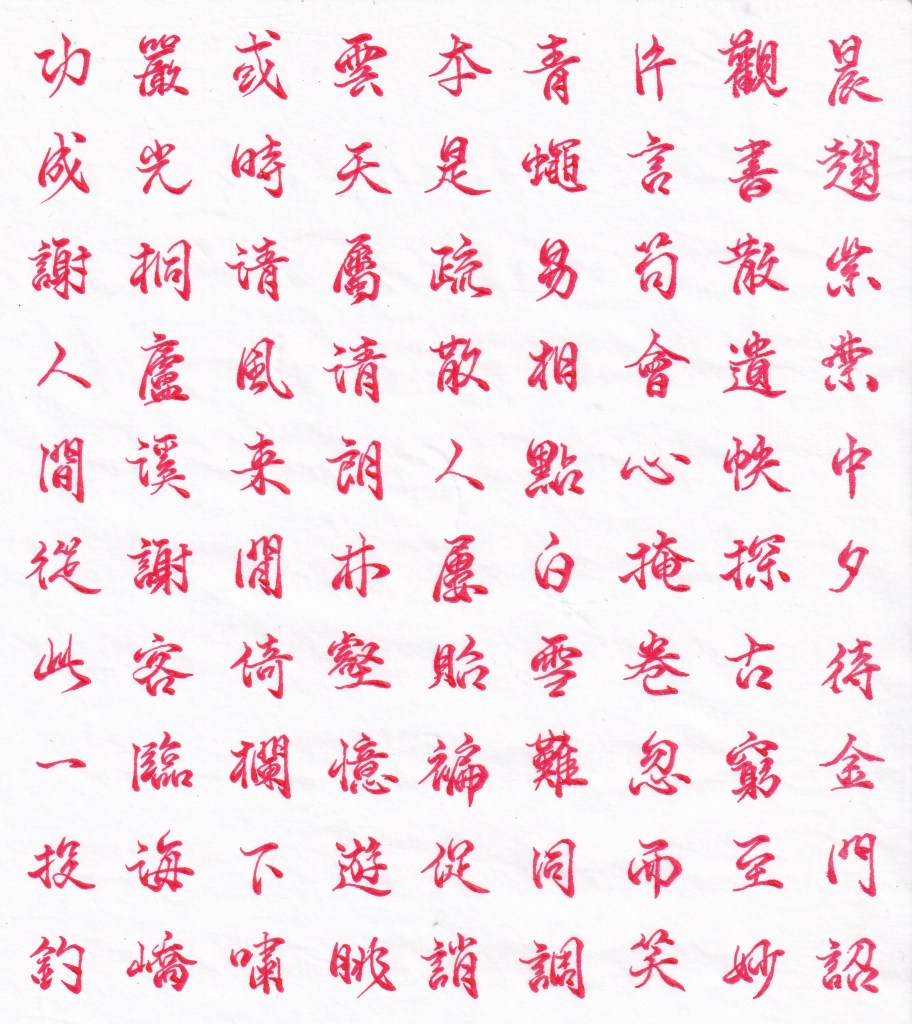 晨趨紫禁中夕待金門詔
觀書散遺帙探古窮至妙
片言苟會心掩卷忽而笑
青蠅易相點白雪難同調
本是疏散人屢貽褊促誚
雲天屬清朗林壑憶遊眺
或時清風來閒倚欄下嘯
嚴光桐廬溪謝客臨海嶠
功成謝人間從此一投釣